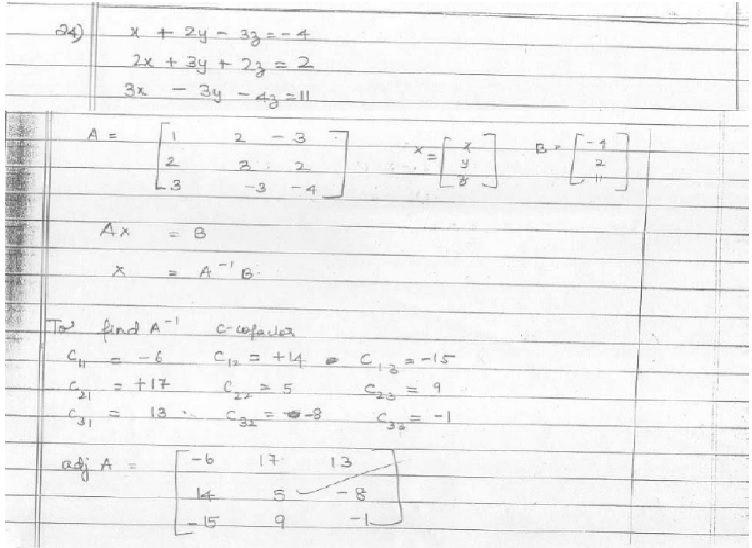 24) x + 2y - 3z = -4
2x + 3y + 2z = 2
3x - 3y - 4z = 11
A = [1 2 -3 X = [x B = [-4
2 3 2 y 2
3 -3 -4] z] 11]
AX = B
X = A⁻¹ B.
To find A⁻¹ C-cofactor
C₁₁ = -6 C₁₂ = +14 C₁₃ = -15
C₂₁ = +17 C₂₂ = 5 C₂₃ = 9
C₃₁ = 13 C₃₂ = -8 C₃₃ = -1
adj A = [-6 17 13
14 5 -8
-15 9 -1]